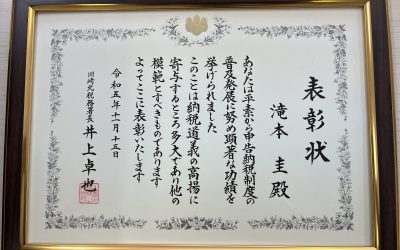 表彰状
滝本 圭 殿
あなたは平素から申告納税制度の
普及発展に努め顕著な功績を
挙げられました
このことは納税道義の高揚に
寄与するところ多大であり他の
模範とすべきものであります
よってここに表彰いたします
令和五年十一月十五日
川崎北税務署長 井上卓也